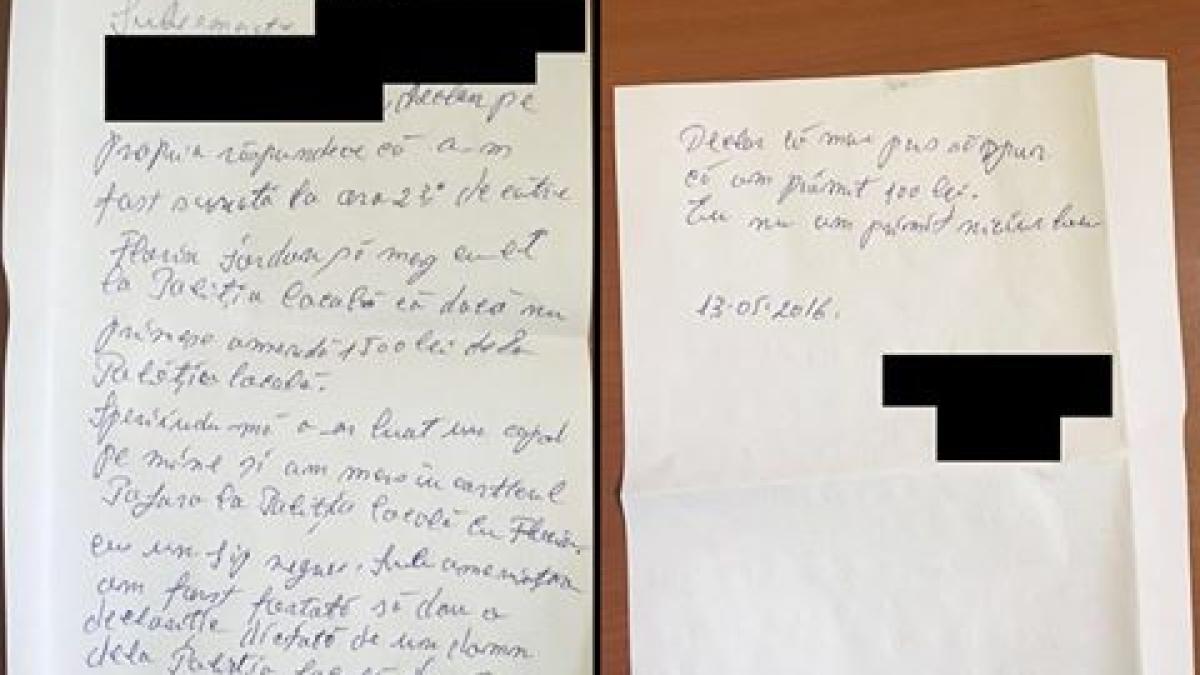 Subsemnata
, declar pe
propria răspundere că a-m
fost sunată la ora 23⁰ de către
Florin Iordan să merg cu el
la Poliția locală că dacă nu
primesc amendă 1500 lei dela
Poliția locală.
Speriindu-mă a-m luat un copil
pe mine și am mers în cartierul
la Poliția locală cu Florin,
cu un jip negru. Sub amenințarea
am fost forțată să dau o
declarație dictată de un domn
dela Poliția
Declar că mau pus să spun
că am primit 100 lei.
Eu nu am primit niciun ban
13-05-2016.